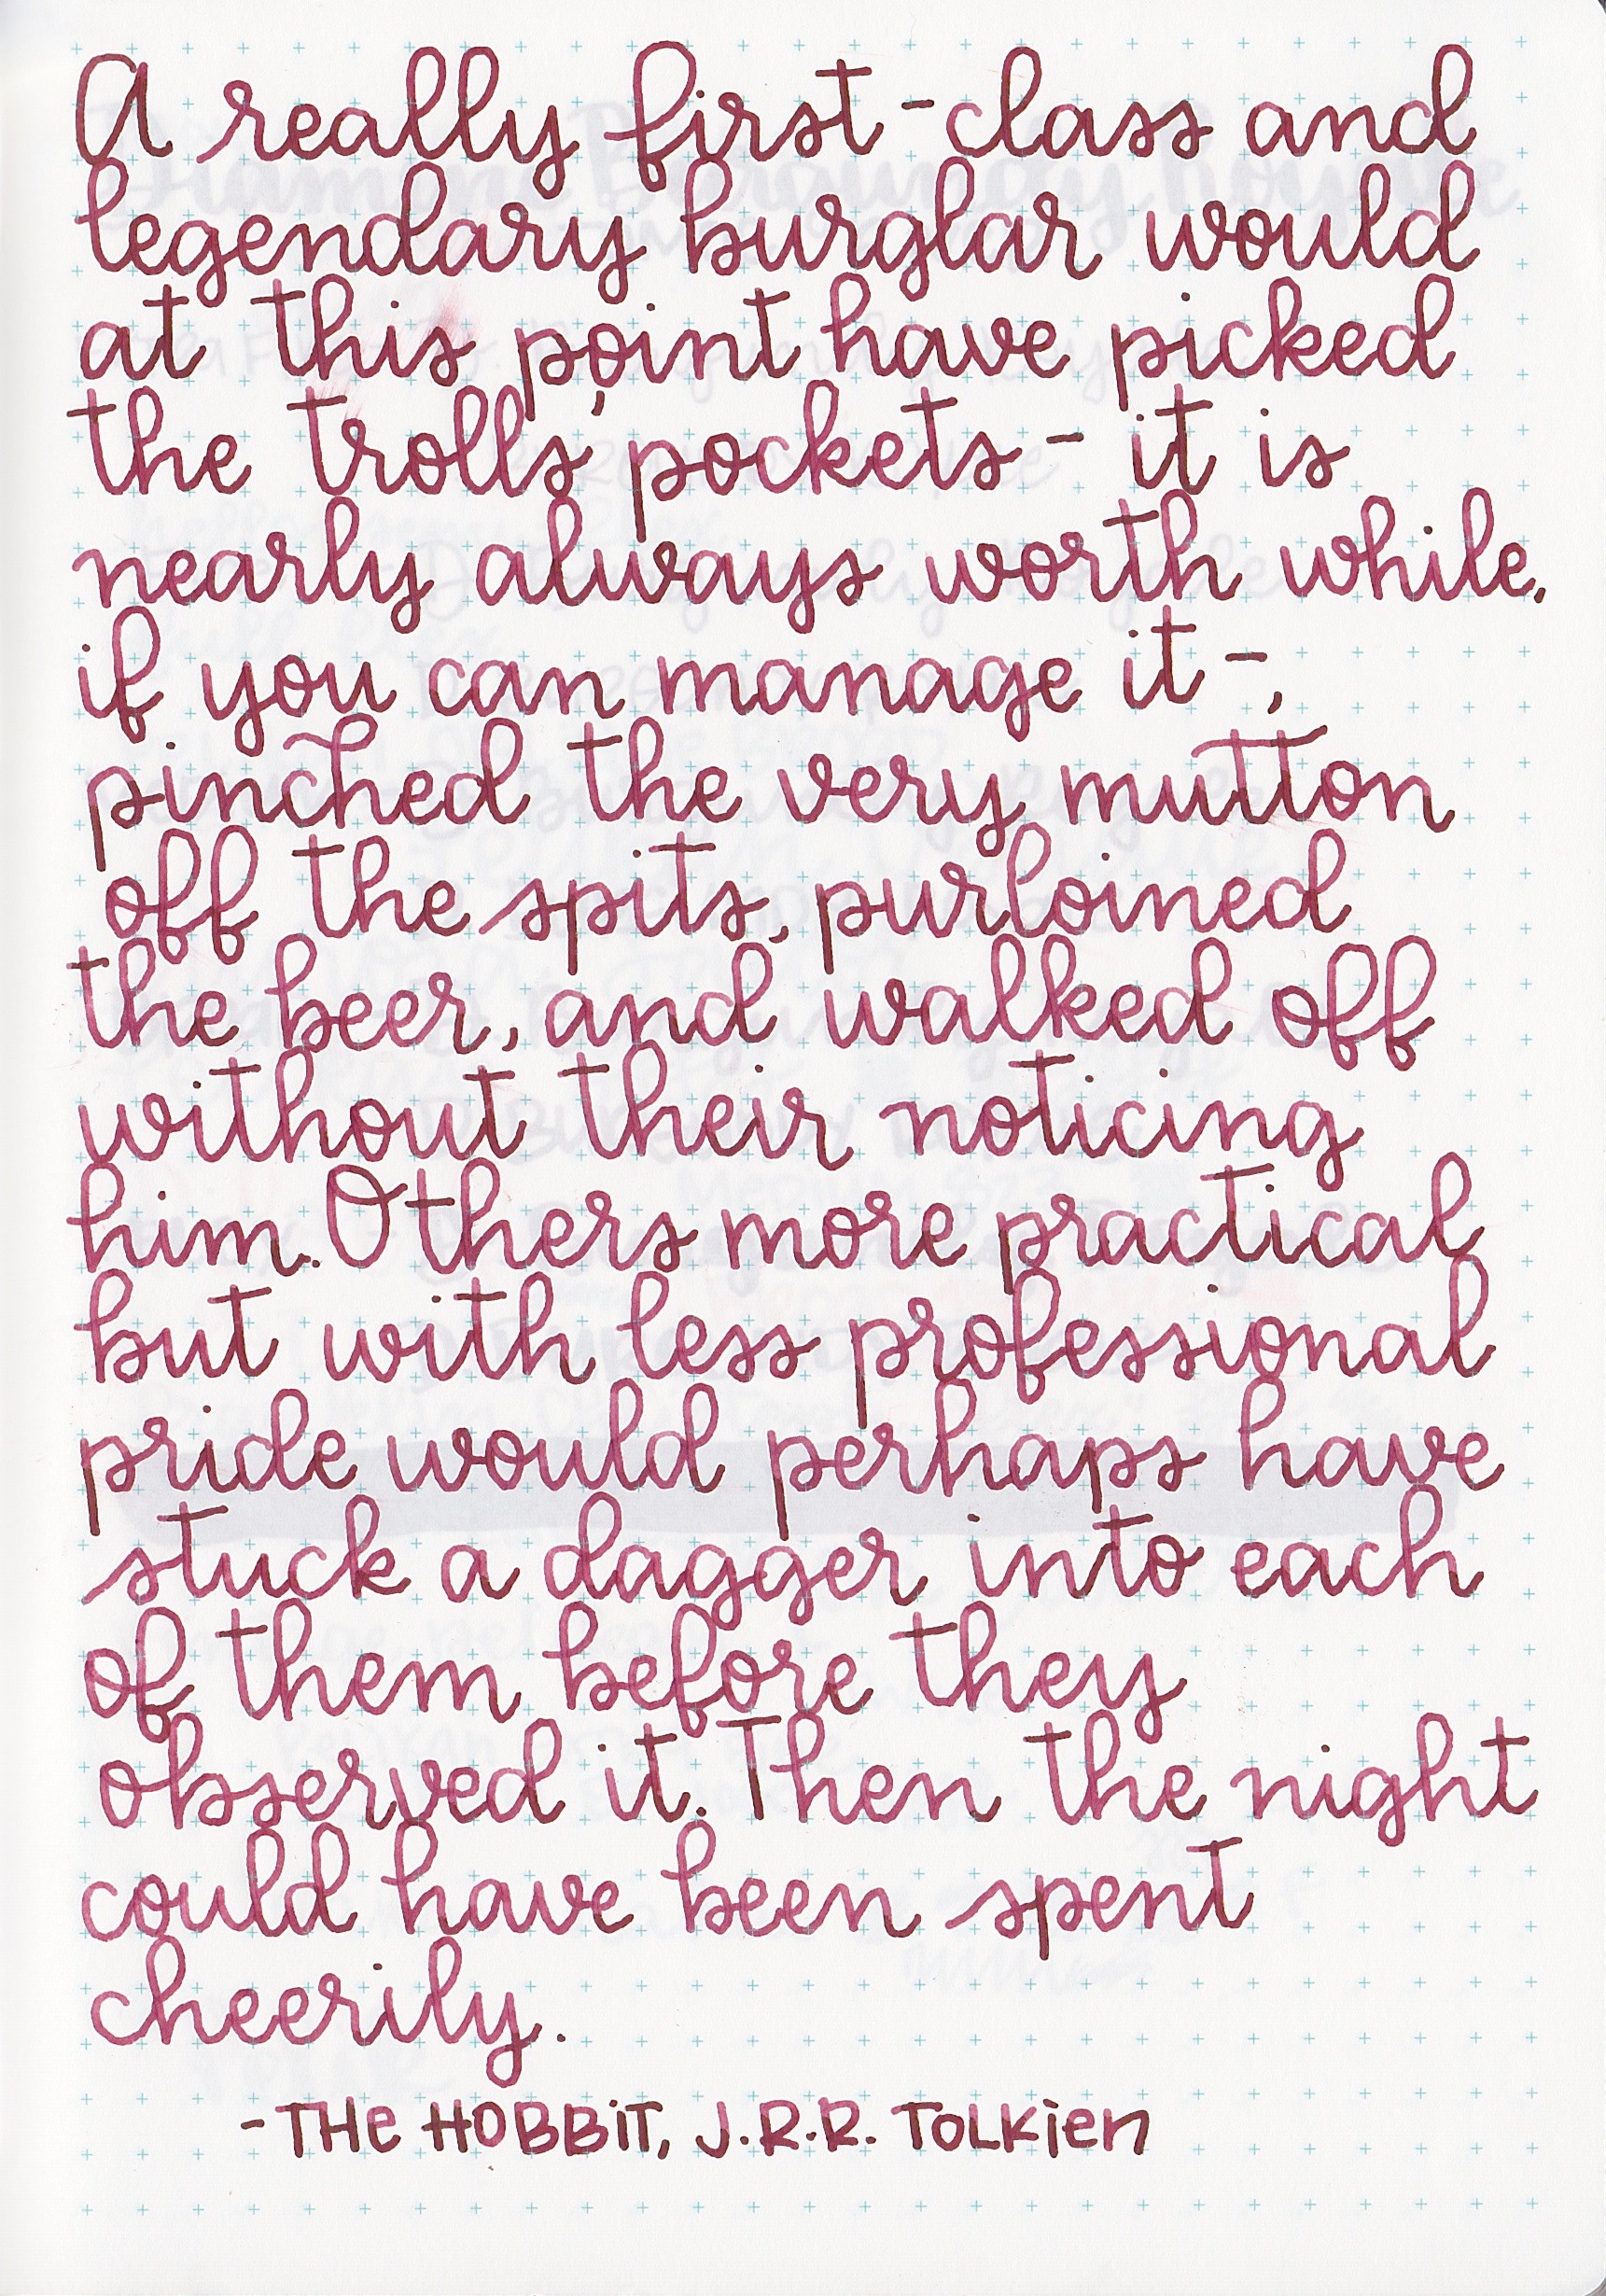 A really first-class and
legendary burglar would
at this point have picked
the trolls' pockets - it is
nearly always worth while,
if you can manage it -,
pinched the very mutton
off the spits, purloined
the beer, and walked off
without their noticing
him. Others more practical
but with less professional
pride would perhaps have
stuck a dagger into each
of them before they
observed it. Then the night
could have been spent
cheerily.
-THe HOBBiT, J.R.R. TOLKien